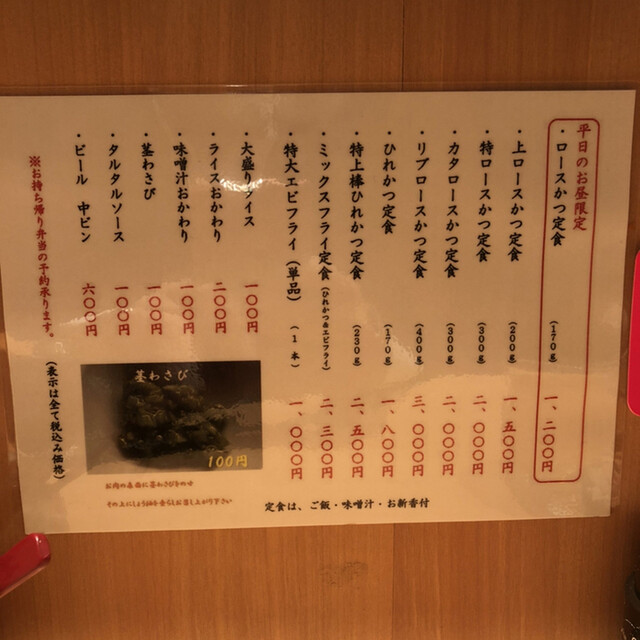 平日のお昼限定
・ロースかつ定食 (170g) 一、二〇〇円
・上ロースかつ定食 (200g) 一、五〇〇円
・特ロースかつ定食 (300g) 二、〇〇〇円
・カタロースかつ定食 (300g) 二、〇〇〇円
・リブロースかつ定食 (400g) 三、〇〇〇円
・ひれかつ定食 (170g) 一、八〇〇円
・特上棒ひれかつ定食 (230g) 二、五〇〇円
・ミックスフライ定食 (ひれかつ&エビフライ) 二、三〇〇円
・特大エビフライ (単品) (1本) 一、〇〇〇円
・大盛りライス 一〇〇円
・ライスおかわり 二〇〇円
・味噌汁おかわり 一〇〇円
・茎わさび 一〇〇円
・タルタルソース 一〇〇円
・ビール 中ビン 六〇〇円
※お持ち帰り弁当の予約承ります。
(表示は全て税込み価格)
茎わさび
100円
お肉の表面に茎わさびをのせ
その上にしょうゆを垂らしお召し上がり下さい
定食は、ご飯・味噌汁・お新香付